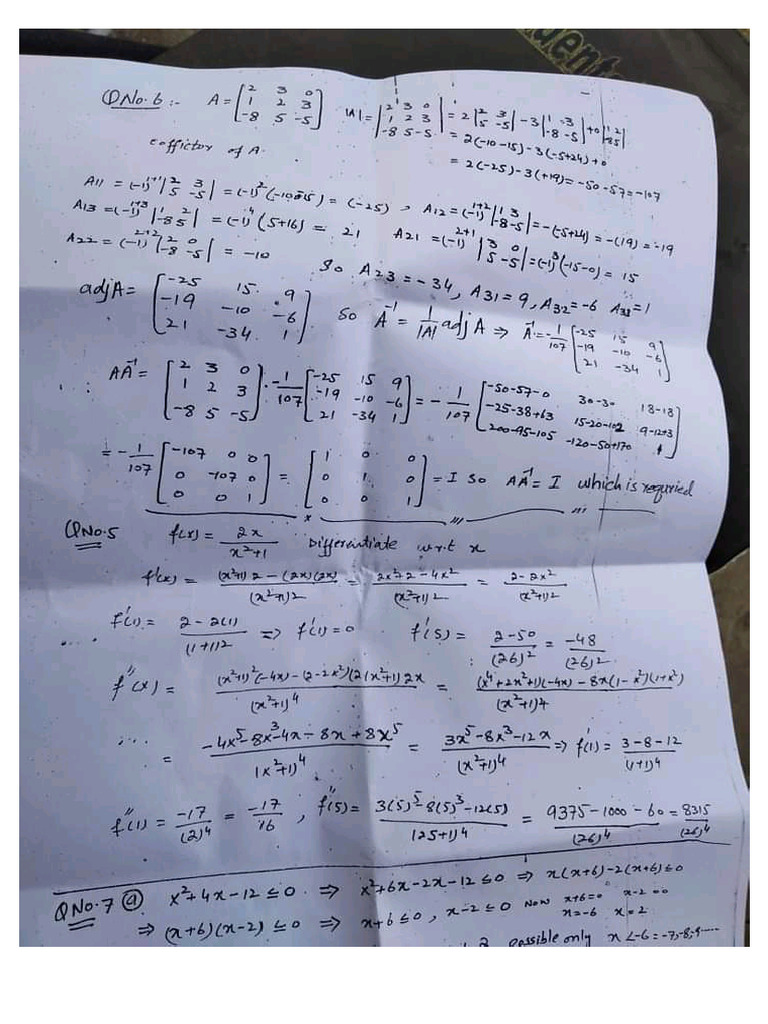 dent
QNo.6 :- A = [2 3 0; 1 2 3; -8 5 -5] |A| = |2 3 0; 1 2 3; -8 5 -5| = 2|2 3; 5 -5| - 3|1 3; -8 -5| + 0|1 2; -8 5|
= 2(-10-15) - 3(-5+24) + 0
coffictor of A. = 2(-25) - 3(+19) = -50 - 57 = -107
A11 = (-1)^1+1 |2 3; 5 -5| = (-1)^2 (-10-15) = (-25) , A12 = (-1)^1+2 |1 3; -8 -5| = -(-5+24) = -(19) = -19
A13 = (-1)^1+3 |1 2; -8 5| = (-1)^4 (5+16) = 21 A21 = (-1)^2+1 |3 0; 5 -5| = (-1)^3 (-15-0) = 15
A22 = (-1)^2+2 |2 0; -8 -5| = -10 So A23 = -34, A31 = 9, A32 = -6 A33 = 1
adjA = [-25 15 9; -19 -10 -6; 21 -34 1] So A^-1 = 1/|A| adj A ⇒ A^-1 = -1/107 [-25 15 9; -19 -10 -6; 21 -34 1]
∴ AA^-1 = [2 3 0; 1 2 3; -8 5 -5] · -1/107 [-25 15 9; -19 -10 -6; 21 -34 1] = -1/107 [-50-57-0 30-30 18-18; -25-38+63 15-20-102 9-12+3; 200-95-105 -120-50+170 1]
= -1/107 [-107 0 0; 0 -107 0; 0 0 1] = [1 0 0; 0 1 0; 0 0 1] = I So AA^-1 = I which is requried
QNo.5 f(x) = 2x/x²+1 Differentiate w.r.t x
f'(x) = (x²+1)2 - (2x)(2x)/(x²+1)2 = 2x²+2-4x²/(x²+1)2 = 2-2x²/(x²+1)2
f'(1) = 2-2(1)/(1+1)2 ⇒ f'(1) = 0 f'(5) = 2-50/(26)² = -48/(26)²
f''(x) = (x²+1)²(-4x) - (2-2x²)(2(x²+1)2x/(x²+1)^4 = (x^4+2x²+1)(-4x) - 8x(1-x²)(1+x²)/(x²+1)4
= -4x^5-8x^3-4x-8x+8x^5/(x²+1)^4 = 3x^5-8x^3-12x/(x²+1)^4 ⇒ f'(1) = 3-8-12/(1+1)4
f''(1) = -17/(2)^4 = -17/16 , f''(5) = 3(5)^5-8(5)^3-12(5)/(25+1)4 = 9375-1000-60/(26)^4 = 8315/(26)^4
QNo.7 (a) x²+4x-12 ≤ 0 ⇒ x²+6x-2x-12 ≤ 0 ⇒ x(x+6)-2(x+6) ≤ 0
⇒ (x+6)(x-2) ≤ 0 ⇒ x+6 ≤ 0 , x-2 ≤ 0 Now x+6=0 x-2=0
x=-6 x=2
2 possible only x<-6 = -7,-8,-9.....